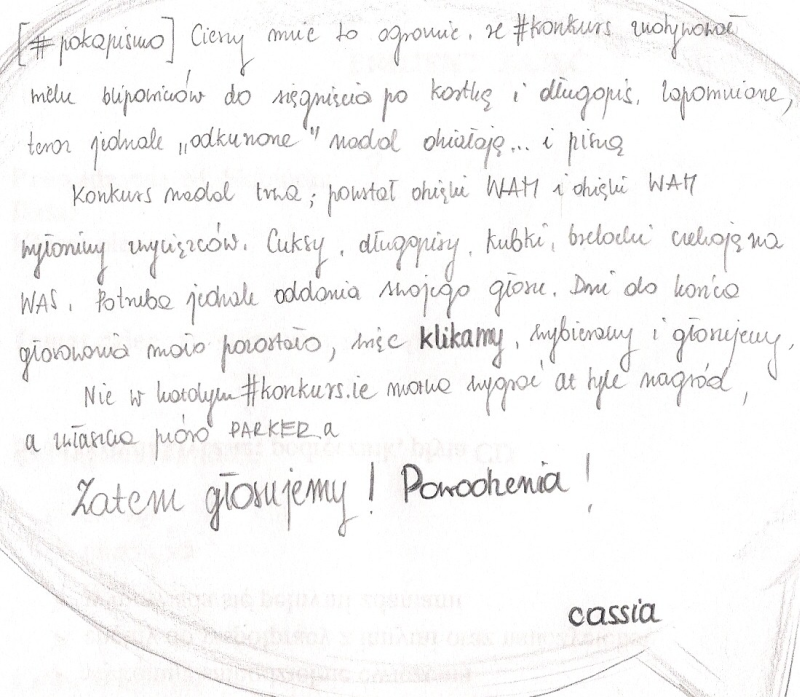 [#pokapismo] Cieszy mnie to ogromnie, że #konkurs zmotywował
wielu blipowiczów do sięgnięcia po kartkę i długopis. Zapomniane,
teraz jednak „odkurzone" nadal działają... i piszą
Konkurs nadal trwa; powstał dzięki WAM i dzięki WAM
wyłonimy zwycięzców. Cuksy, długopisy, kubki, breloczki czekają na
WAS. Potrzeba jednak oddania swojego głosu. Dni do końca
głosowania mało pozostało, więc klikamy, wybieramy i głosujemy.
Nie w każdym #konkurs.ie można wygrać aż tyle nagród,
a zwłaszcza pióro PARKER.a
Zatem głosujemy! Powodzenia!
cassia